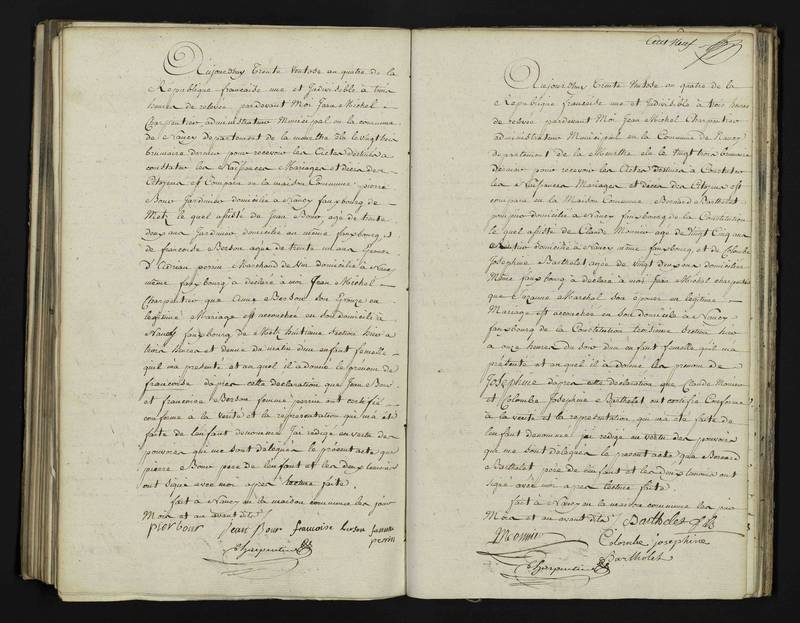 Aujourdhuy Trente Ventose an quatre de la
Republique francaise une et Indivisible à trois
heures de relevée, pardevant Moi Jean Michel
Charpentier administrateur Municipal en la commune
de Nancy departement de la meurthe élu le vingt trois
brumaire dernier pour recevoir les Actes destinés a
constater les Naissances Mariages et deces des
Citoyens est Comparu en la maison Commune pierre
Bour Jardinier domicilié a Nancy fauxbourg de
Metz le quel assisté de Jean Bour, agé de trente
deux ans Jardinier domicilié au même fauxbourg, et
de francoise Berson agée de trente un ans Epouse
D'Adrian perrin Marchand de Vin domicilié à Nancy
même fauxbourg à déclaré à moi Jean Michel
Charpentier que Anne Berson Son Epouse en
legitime Mariage est accouchée en son domicile à
Nancy fauxbourg de Metz huitieme Section hier à
trois heures et demie du matin d'un enfant femelle
quil ma présenté et au quel il a donné le prénom de
francoise dapres cette declaration que Jean Bour
et francoise Berson femme perrin ont certifié
conforme a la verité et la représentation qui ma été
faite de lenfant denommé Jai redigé en vertu des
pouvoirs qui me sont délégués le present acte que
pierre Bour pere de lenfant et les deux temoins
ont signé avec moi apres lecture faite.
fait a Nancy en la maison commune les jour
Mois et an avant dits
pier bour Jean Bour francoise berson femme
perrin
Charpentier
Aujourdhuy Trente Ventose an quatre de la
République francaise une et Indivisible à trois heures
de relevée pardevant Moi Jean Michel Charpentier
administrateur Municipal en la Commune de Nancy
departement de la Meurthe élu le Vingt trois brumaire
dernier pour recevoir les Actes destinés à Constater
les Naissances Mariages et deces des Citoyens est
comparu en la Maison Commune Bernard Barthelet
domicilié a Nancy fauxbourg de la Constitution
le quel assisté de Claude Monnier agé de Vingt Cinq ans
domicilié a Nancy même fauxbourg, et de Colombe
Josephine Barthelet agée de vingt deux ans domiciliée
Même fauxbourg à declaré à moi Jean Michel charpentier
que Suzanne Marchal Son epouse en legitime
Mariage est accouchée en son domicile à Nancy
fauxbourg de la Constitution troisieme Section hier
a onze heures du soir d'un enfant femelle quil ma
présenté et au quel il à donné les prenom de
Josephine dapres cette déclaration que Claude Monnier
et Colombe Josephine Barthelet ont certifié Conforme
à la verité et la représentation qui ma été faite de
lenfant denommé jai redigé en vertu des pouvoirs
qui me sont délégués le present acte que Bernard
Barthelet pere de lenfant et les deux temoins ont
signé avec moi apres lecture faite
fait à Nancy en la maison commune les jour
Mois et an avant dits Barthelet
Monnier Colombe josephine
Barthelet
Charpentier